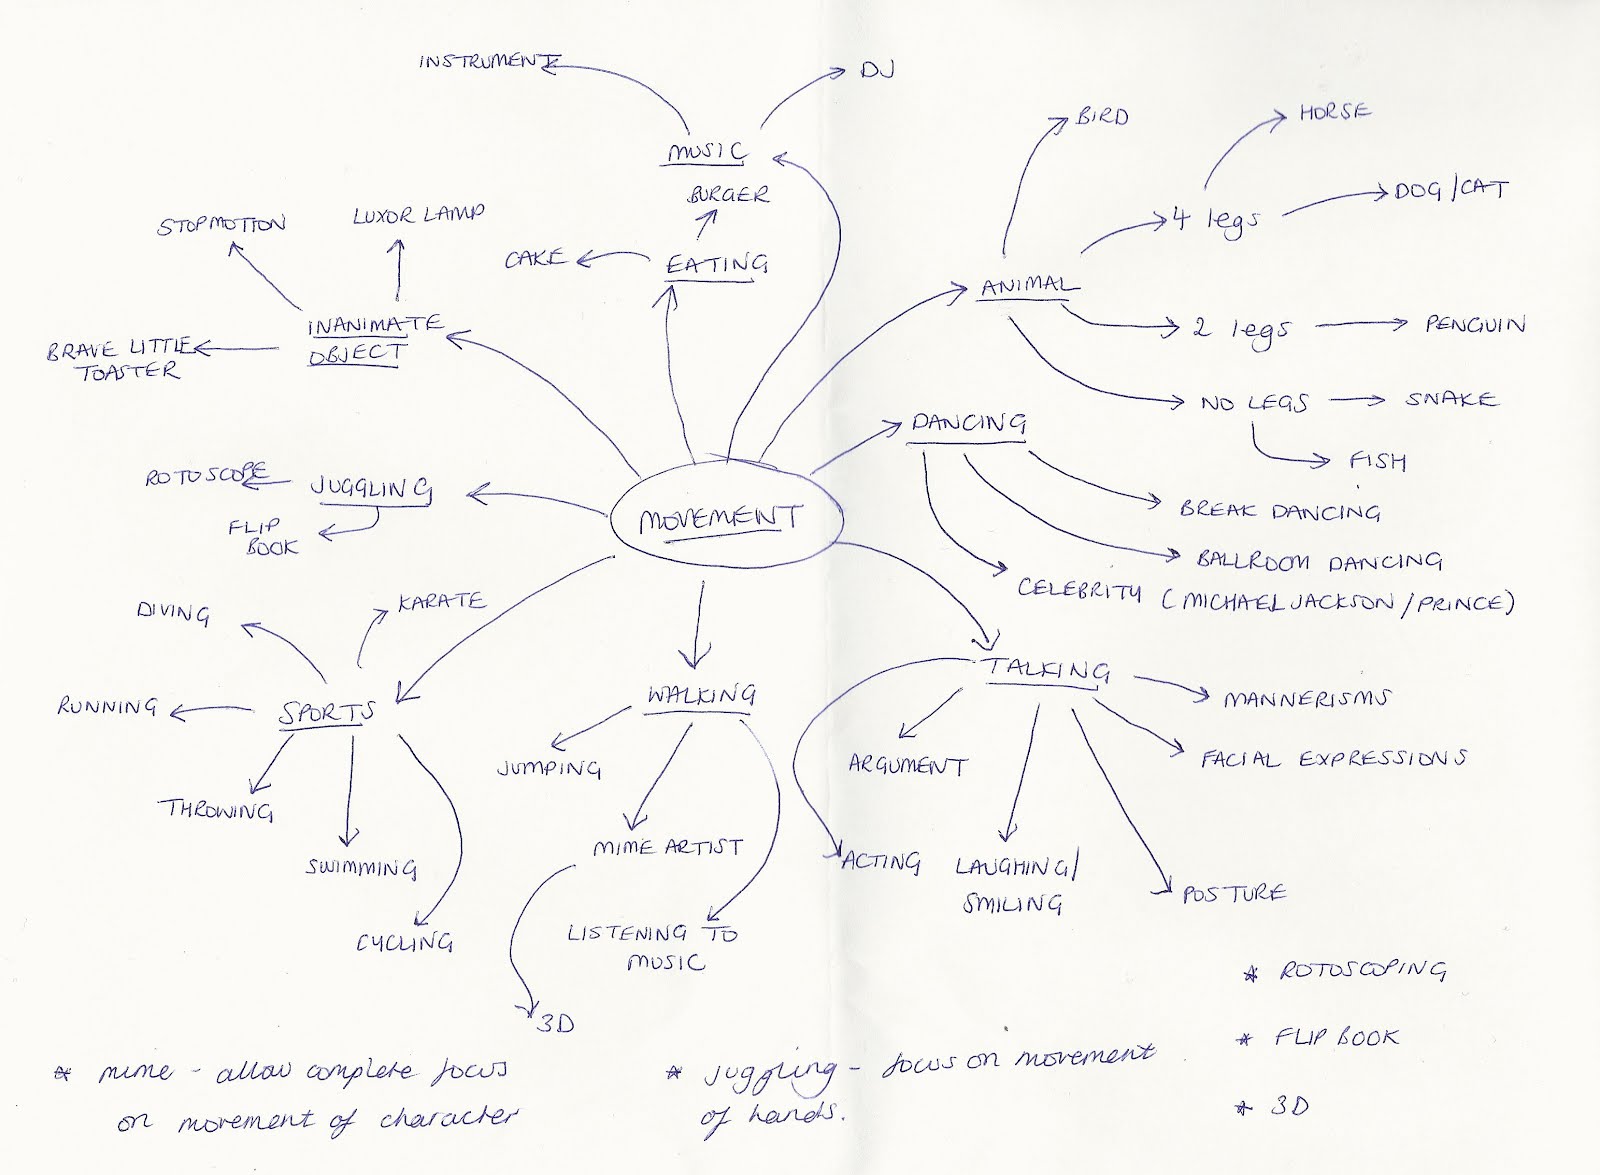 INSTRUMENT
DJ
MUSIC
BIRD
HORSE
BURGER
DOG/CAT
4 legs
STOPMOTION
LUXOR LAMP
CAKE
EATING
ANIMAL
INANIMATE
OBJECT
2 legs
PENGUIN
BRAVE LITTLE
TOASTER
NO LEGS
SNAKE
DANCING
FISH
ROTOSCOPE
JUGGLING
BREAK DANCING
MOVEMENT
FLIP
BOOK
BALLROOM DANCING
CELEBRITY (MICHAEL JACKSON/PRINCE)
DIVING
KARATE
TALKING
MANNERISMS
RUNNING
SPORTS
WALKING
FACIAL EXPRESSIONS
ARGUMENT
JUMPING
THROWING
MIME ARTIST
SWIMMING
ACTING
LAUGHING/
SMILING
POSTURE
CYCLING
LISTENING TO
MUSIC
* ROTOSCOPING
3D
* FLIP BOOK
* mime - allow complete focus
on movement of character
* juggling - focus on movement
of hands.
* 3D